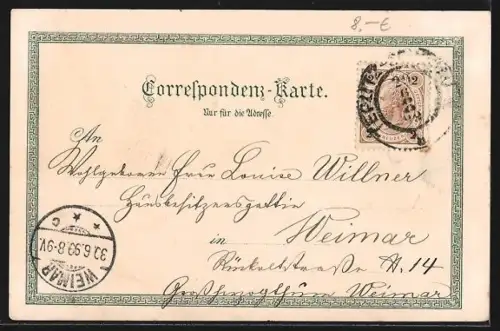 8,-€
Correspondenz-Karte.
Nur für die Adresse.
An
Wohlgeboren Frau Louise Willner
Hausbesitzersgattin
in Weimar
Rückertstrasse N. 14
Großherzogthum Weimar
WEIMAR
30.6.99.8-9V.
* c *